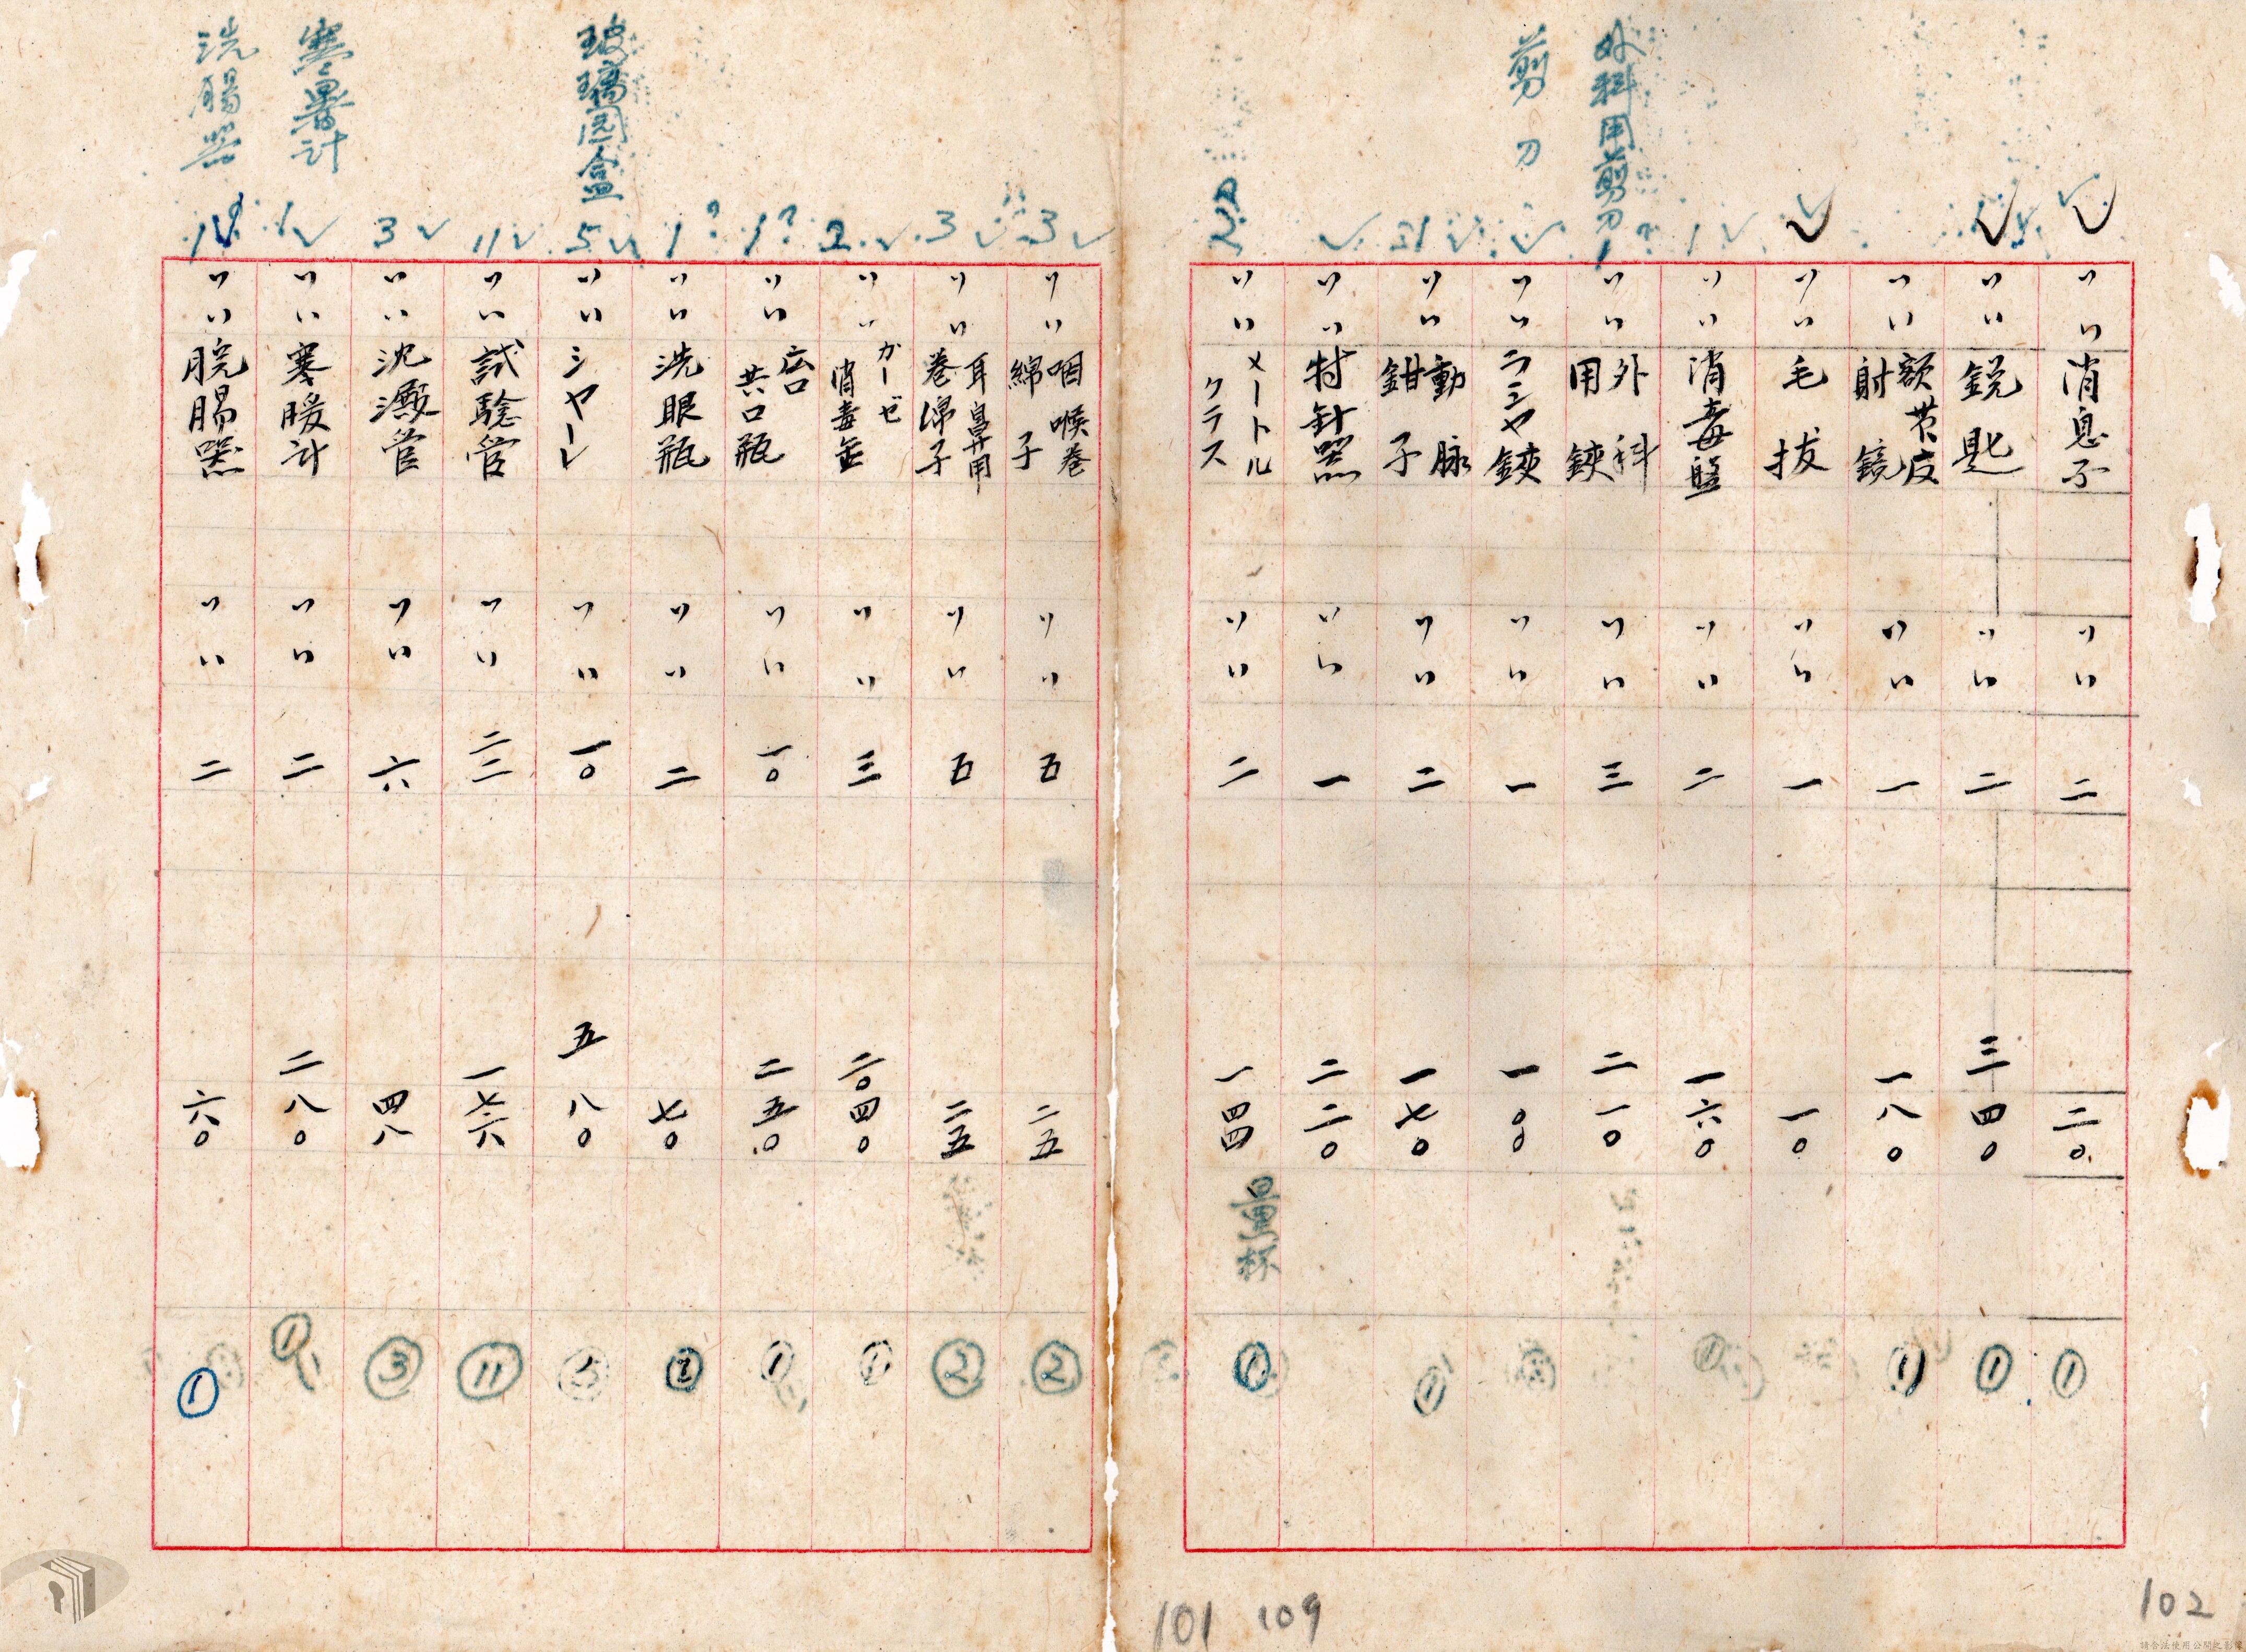 外科用剪刀
剪刀
〃〃 消息子 〃〃 二 二〇
〃〃 鋭匙 〃〃 二 三四〇
〃〃 額帯反射鏡 〃〃 一 一八〇
〃〃 毛抜 〃〃 一 一〇
〃〃 消毒盤 〃〃 二 一六〇
1 ? 〃〃 外科用鋏 〃〃 三 二一〇
〃〃 ラシヤ鋏 〃〃 一 一〇〇
〃〃 動脉鉗子 〃〃 二 一七〇
〃〃 持針器 〃〃 一 二二〇
〃〃 メートルクラス 〃〃 二 一四四
量杯
① ① ① ① ① ①
玻璃園盒
寒暑計
洗腸器
3 〃〃 咽喉巻綿子 〃〃 五 二五 ②
3 〃〃 耳鼻用巻綿子 〃〃 五 二五 ②
2 〃〃 ガーゼ消毒缶 〃〃 三 二〇四〇 ①
1? 〃〃 広口共口瓶 〃〃 一〇 二五〇 ①
1? 〃〃 洗眼瓶 〃〃 二 七〇
5 〃〃 シヤーレ 〃〃 一〇 五八〇 ⑤
11 〃〃 試験管 〃〃 二二 一七六 ⑪
3 〃〃 沈澱管 〃〃 六 四八 ③
1 〃〃 寒暖計 〃〃 二 二八〇 ①
1 〃〃 脘腸器 〃〃 二 六〇 ①
101 109
102